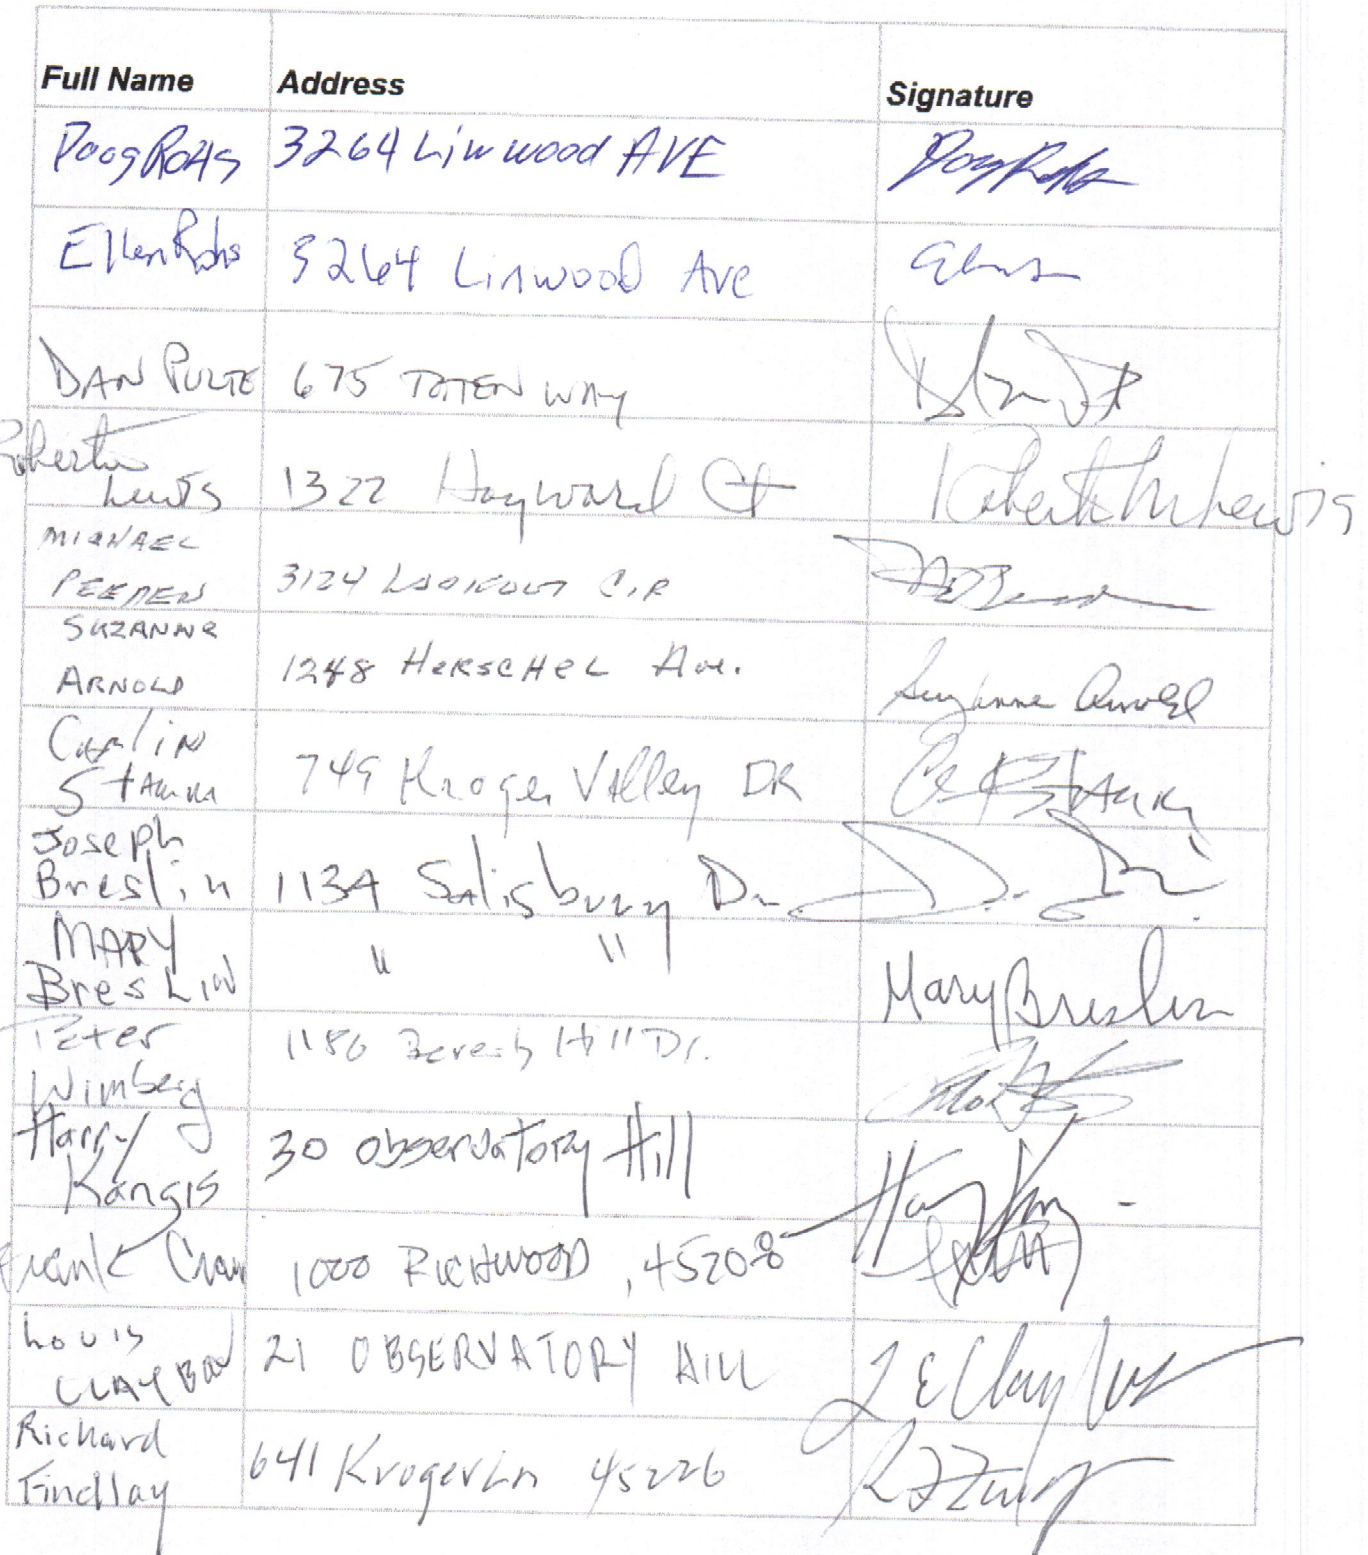 Full Name Address Signature
Doog Rohs 3264 Linwood AVE
Ellen Rohs 3264 Linwood Ave
DAN PULTE 675 TOTEN WAY
Roberta
Lewis 1322 Hayward Ct Roberta M Lewis
MICHAEL
3124 LOOKOUT CIR
SUZANNE
ARNOLD 1248 HERSCHEL Ave. Suzanne Arnold
Carlin
749 Kroger Valley DR
Joseph
Breslin 1134 Salisbury Dr.
MARY
Breslin " " Mary Breslin
Peter
Wimberg 1180 Beverly Hill Dr.
Harry
Kangis 30 Observatory Hill
Frank 1000 RICHWOOD, 45208
Louis
CLAYBON 21 OBSERVATORY HILL
Richard
Findlay 641 Kroger Ln 45226